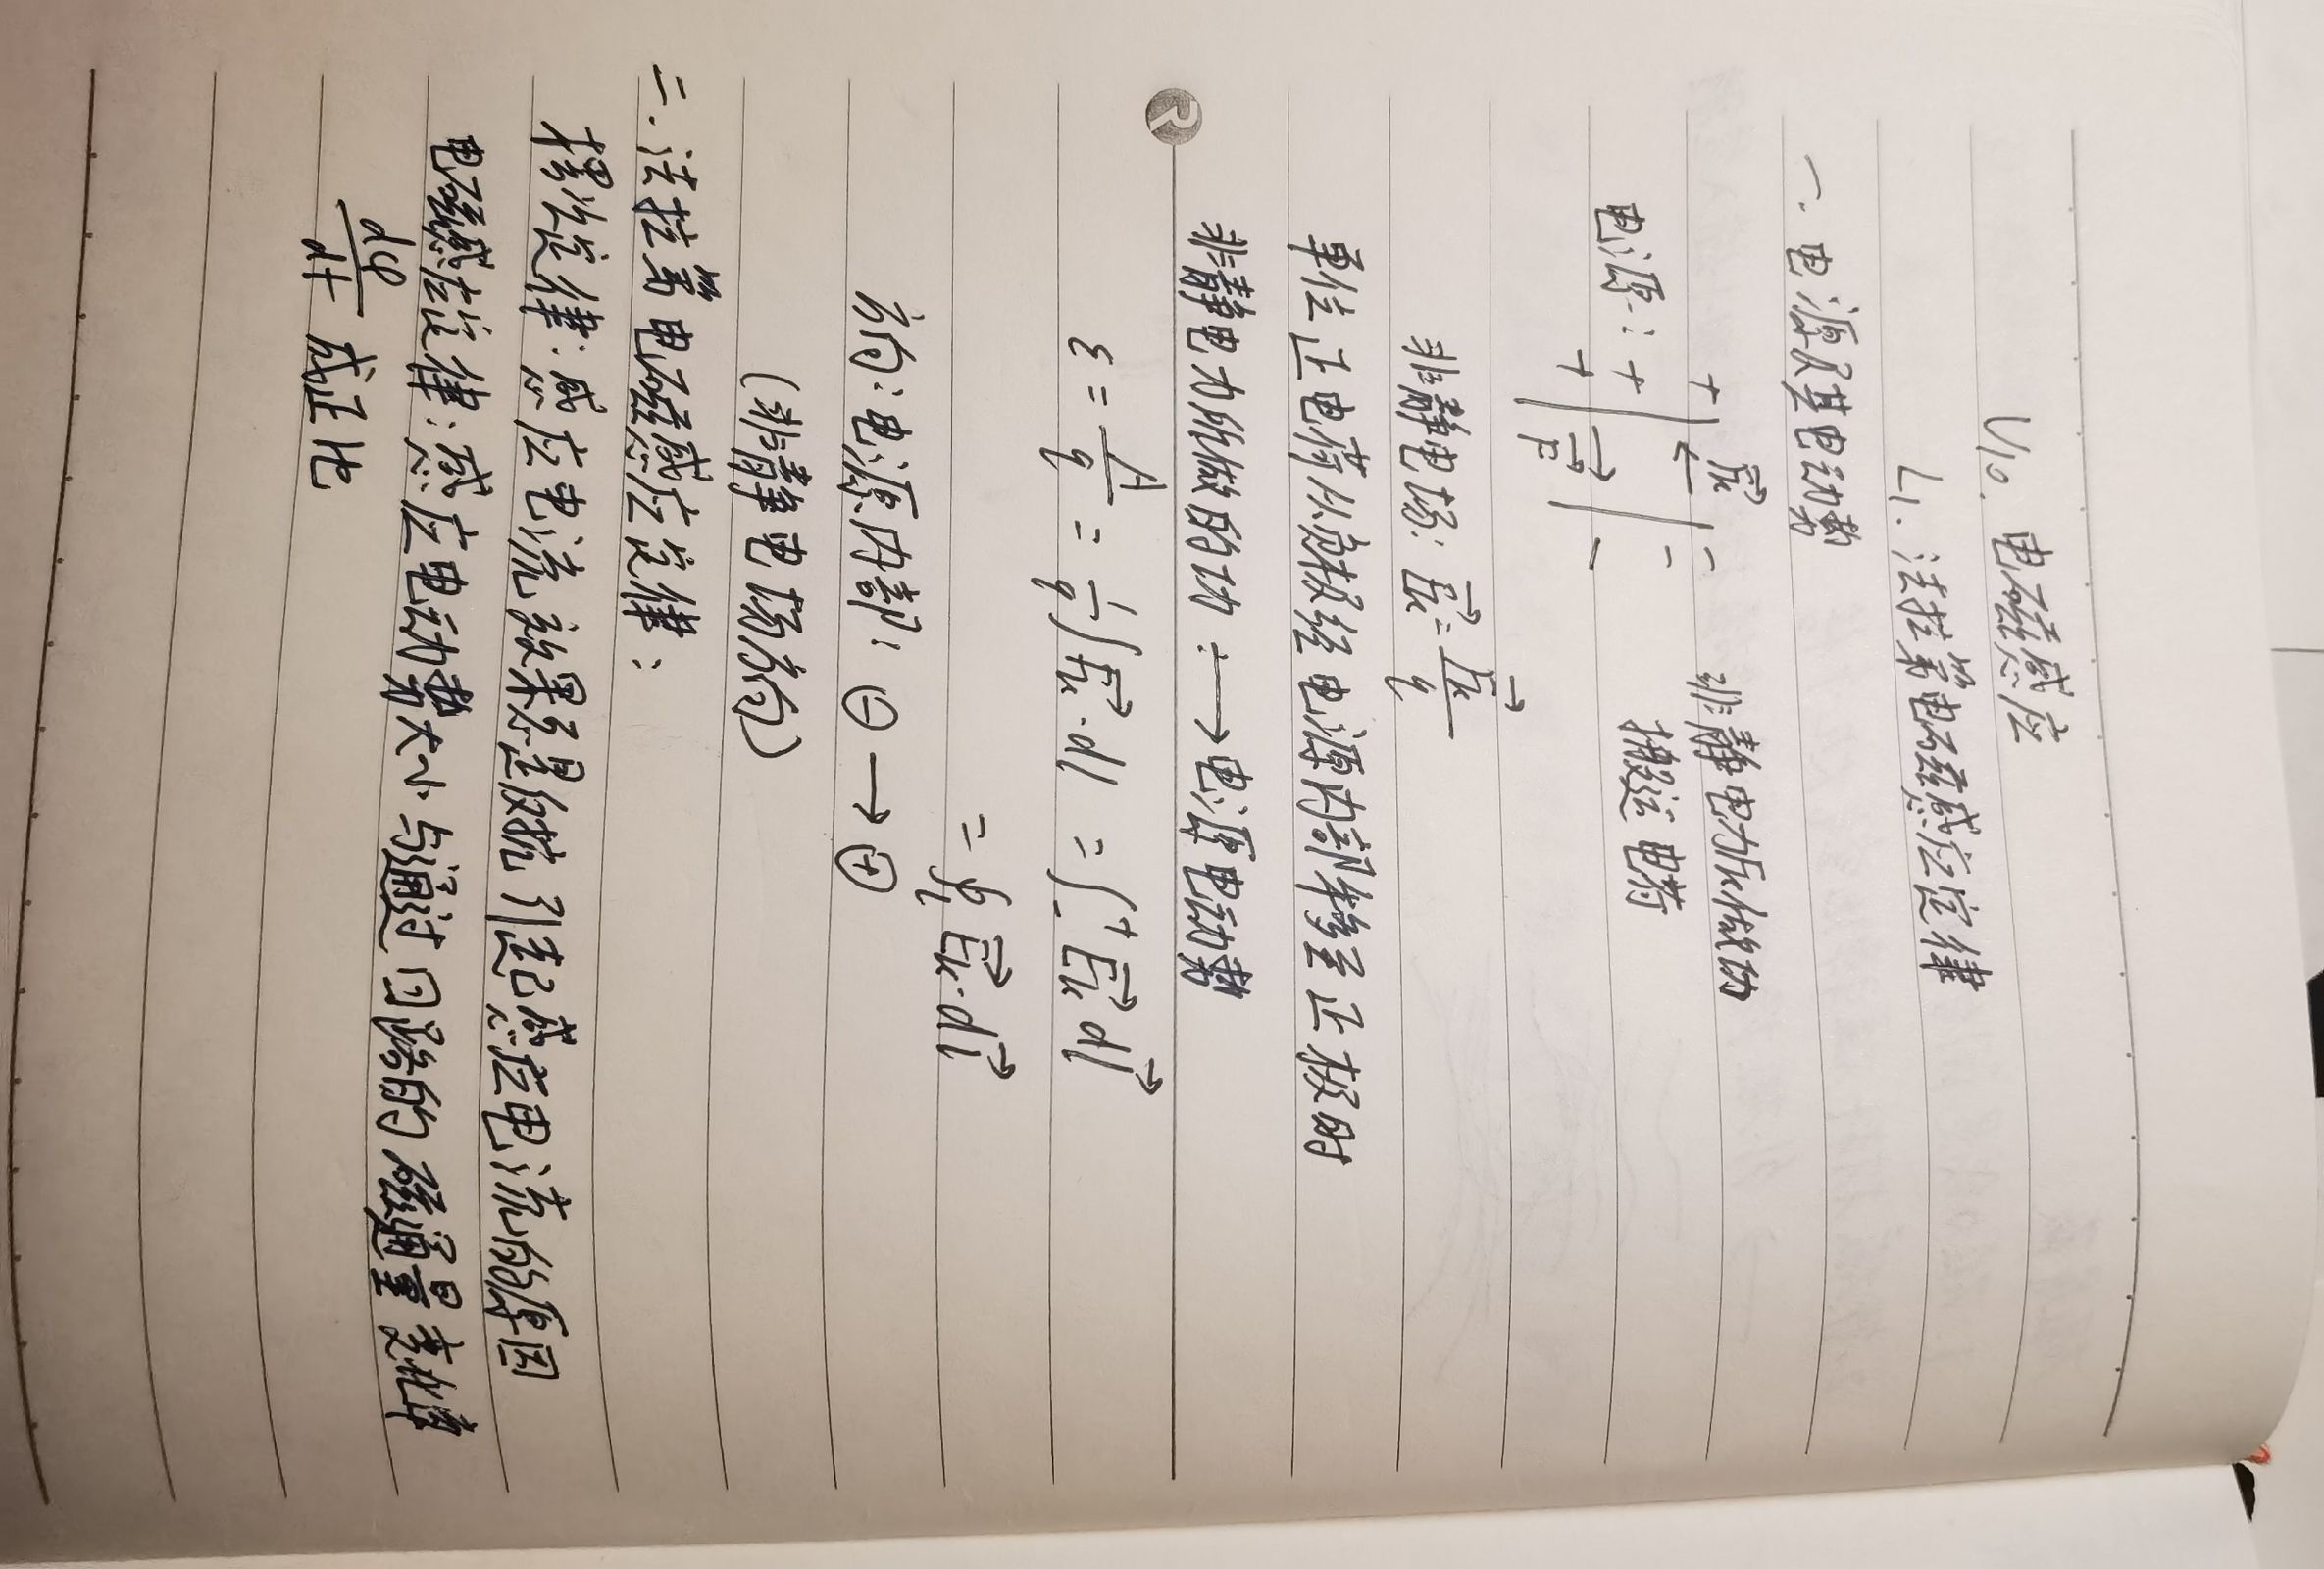 U10. 电磁感应
L1. 法拉第电磁感应定律
一. 电源及其电动势
电源: + + + F⃗k ← → F⃗ − − −
非静电力Fk做功
搬运电荷
非静电场: E⃗k = F⃗k/q
单位正电荷从负极经电源内部移至正极时
非静电力所做的功 : → 电源电动势
ε = A/q = 1/q ∫ F⃗k · dl = ∫₋⁺ E⃗k dl⃗
= ∮L E⃗k · dl⃗
方向: 电源内部: ⊖ → ⊕
(非静电场方向)
二. 法拉第电磁感应定律:
楞次定律: 感应电流效果总是反抗引起感应电流的原因
电磁感应定律: 感应电动势大小与通过回路的磁通量变化率
dφ/dt 成正比